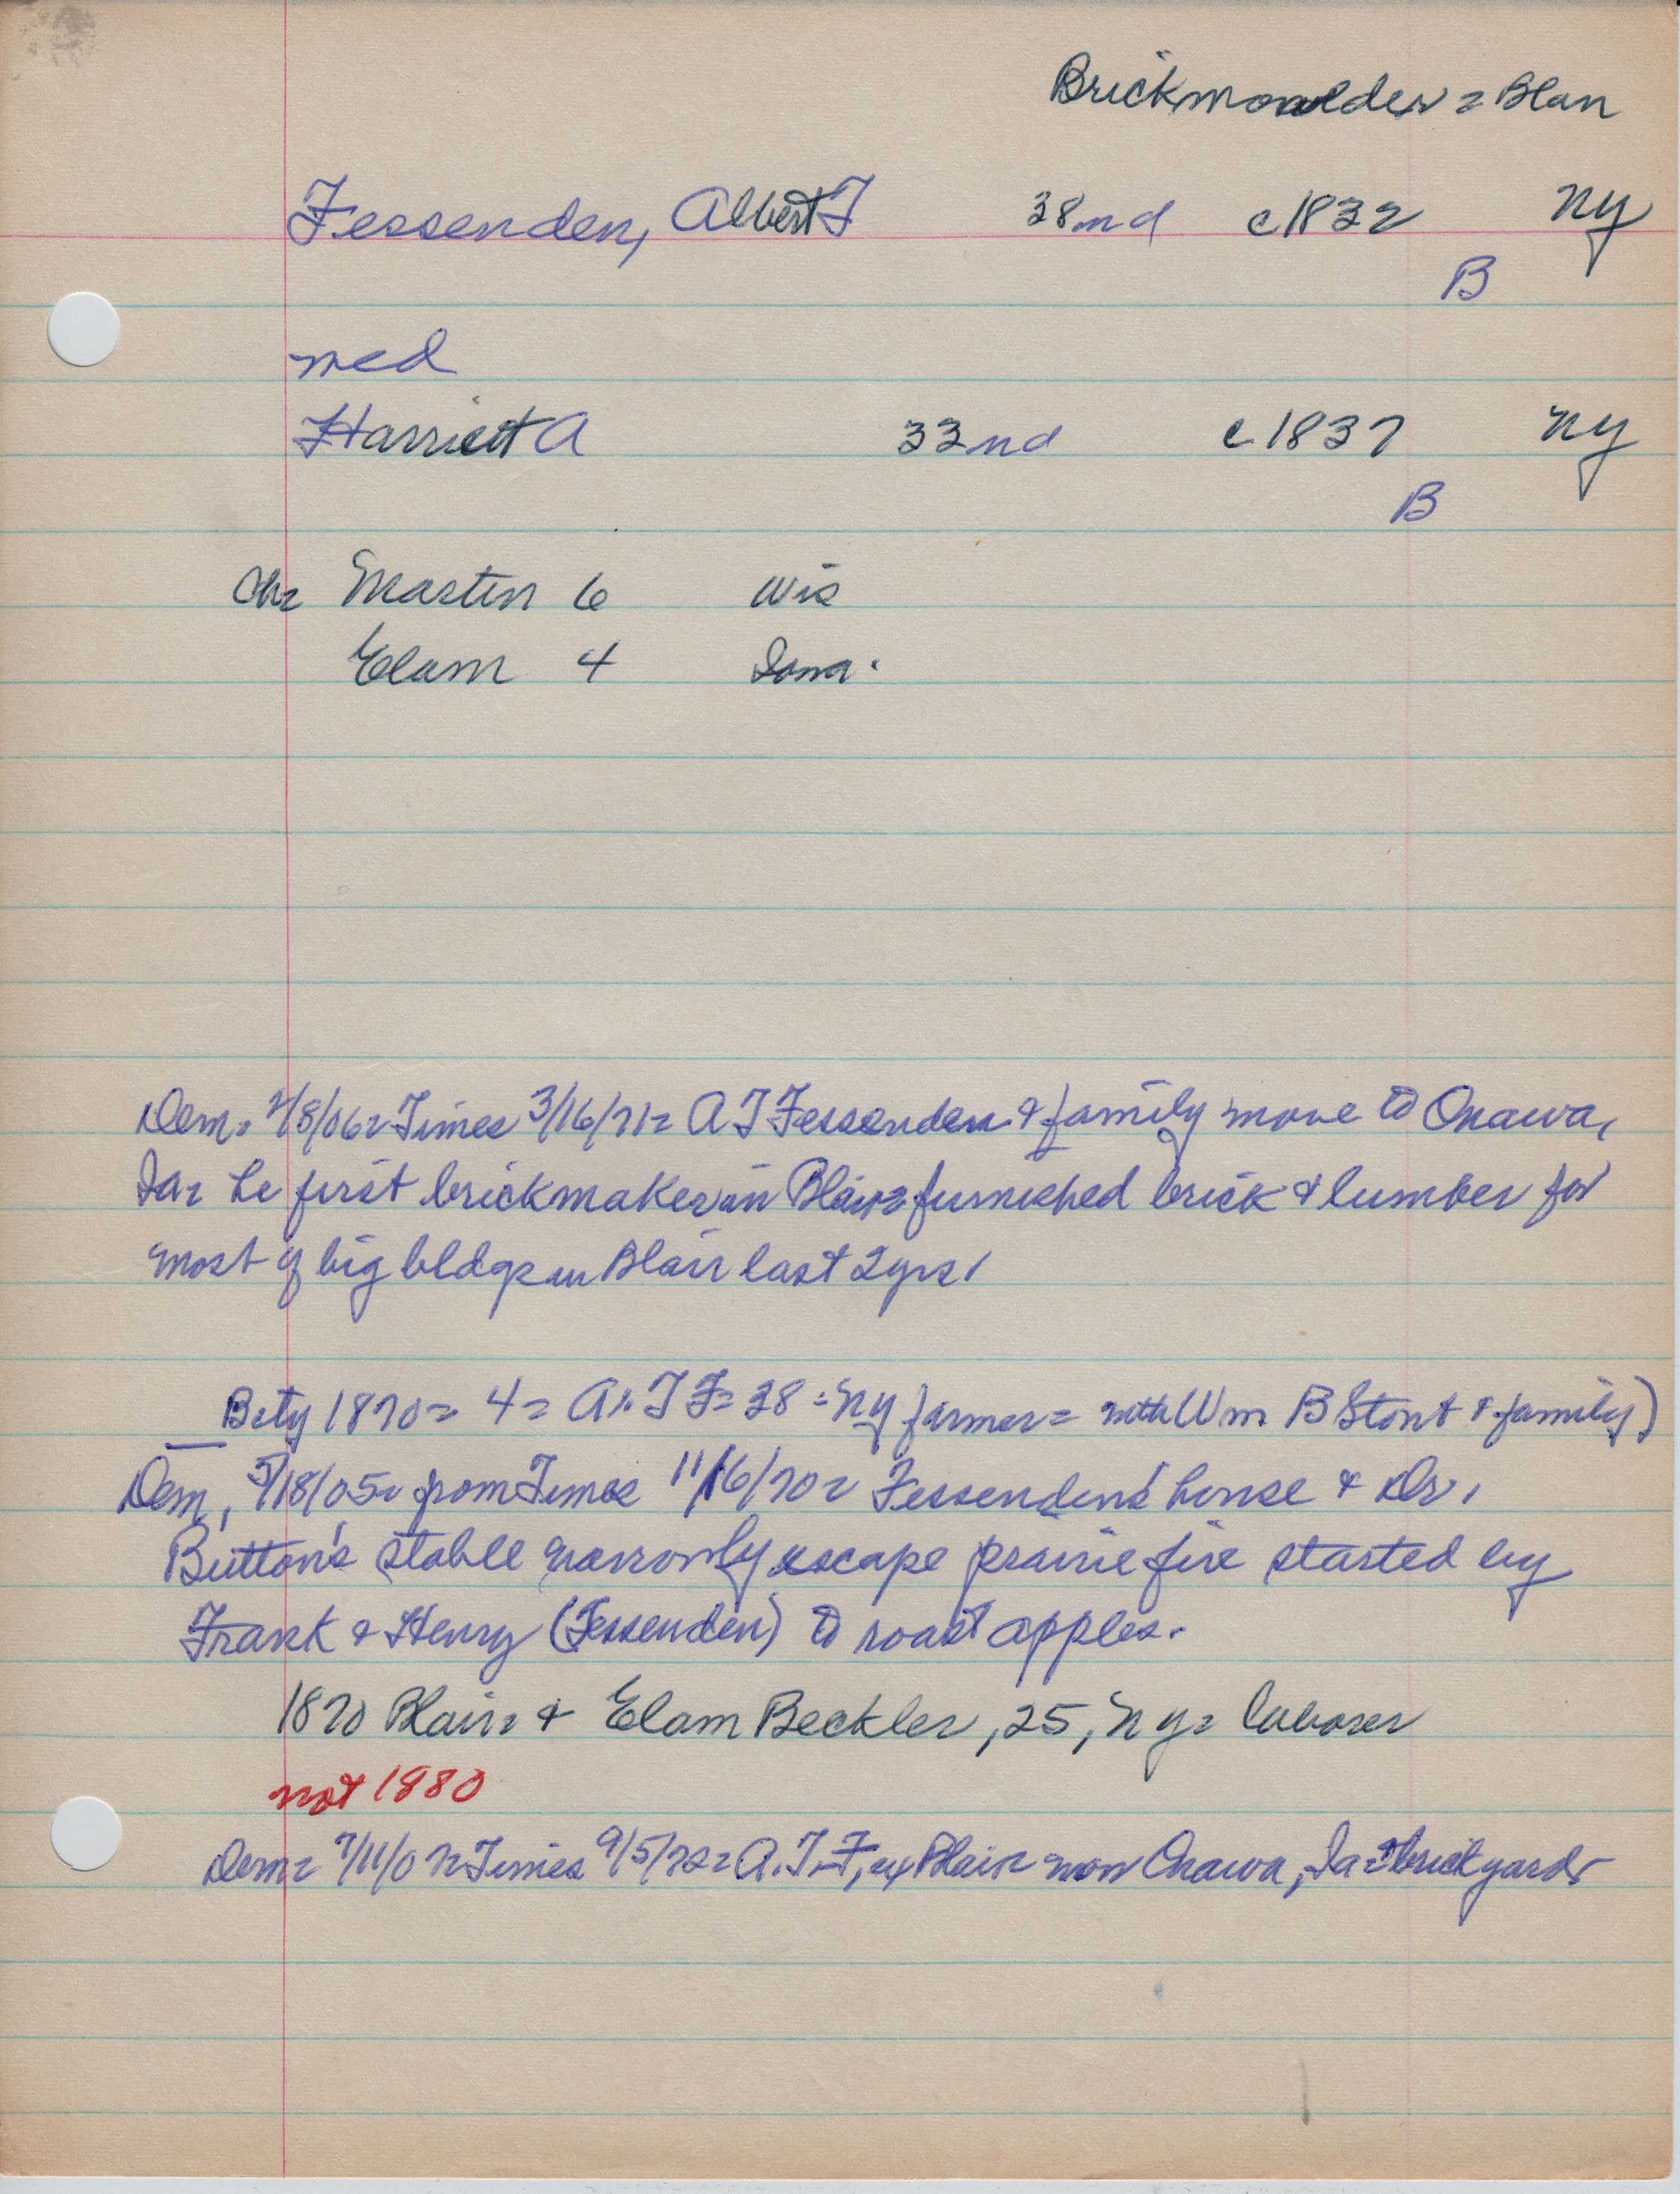 Brickmoulder = Blair
Fessenden, Albert T 38 md c1832 NY
B
med
Harriett A 33 md c1837 NY
B
Ch= Martin 6 Wis
Elam 4 Iowa.
Dem= 2/8/06= Times 3/16/71= A T Fessenden & family move to Onawa,
Ia= he first brickmaker in Blair= furnished brick & lumber for
most of big bldgs in Blair last 2 yrs.
B city 1870= 4= A. T F= 38= NY farmer= with Wm B Stout & family)
Dem, 5/18/05= from Times 11/16/70= Fessenden's house & Dr.
Button's stable narrowly escape prairie fire started by
Frank & Henry (Fessenden) to roast apples.
1870 Blair= & Elam Beckler, 25, NY= laborer
not 1880
Dem= 7/11/07= Times 9/5/72= A. T. F, ex Blair now Onawa, Ia= brickyard